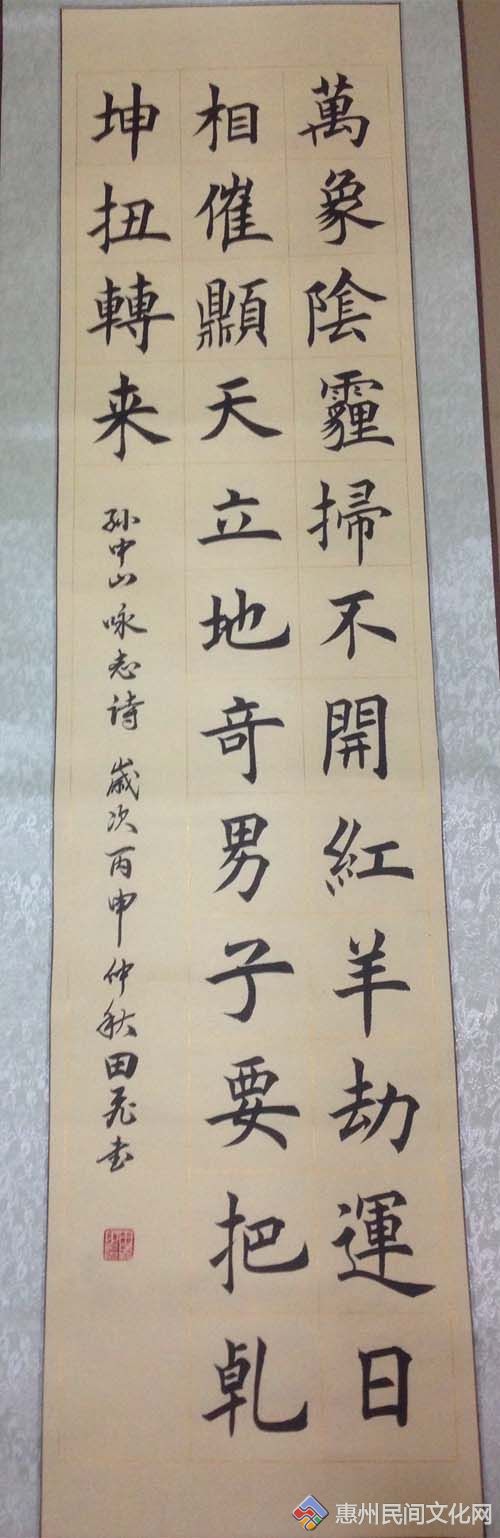 萬象陰霾掃不開紅羊劫運日
相催顯天立地奇男子要把乹
坤扭轉来
孙中山咏志诗 歲次丙申仲秋田飛书
惠州民间文化网